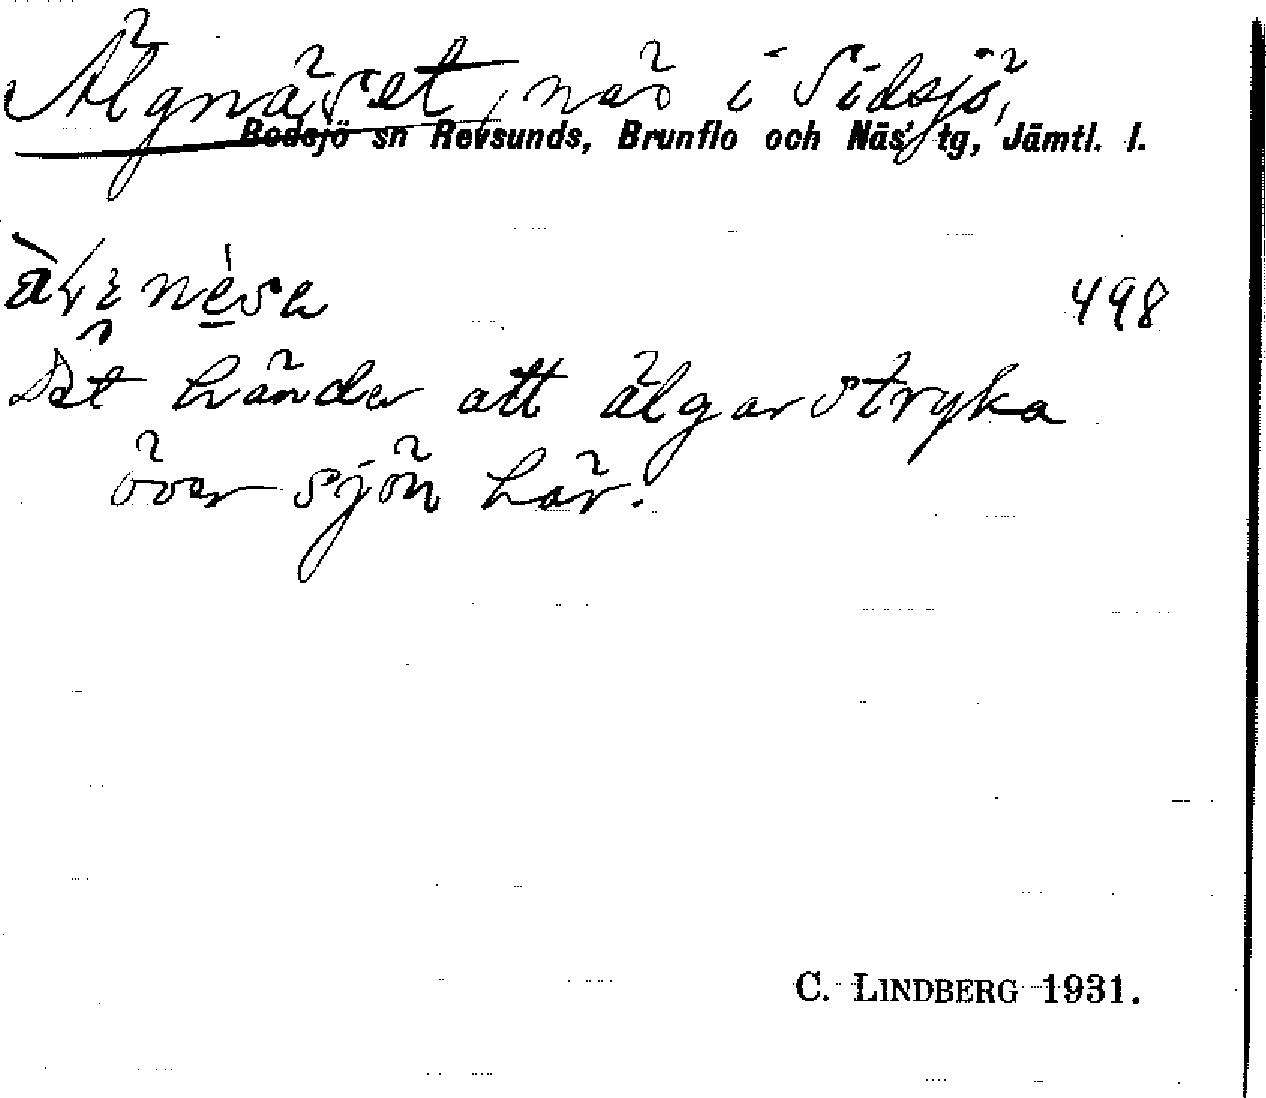 Älgnäset, näs i Sidsjö,
Bodsjö sn Revsunds, Brunflo och Näs' tg, Jämtl. l.
498
Det händer att älgar stryka
över sjön här.
C. LINDBERG 1931.